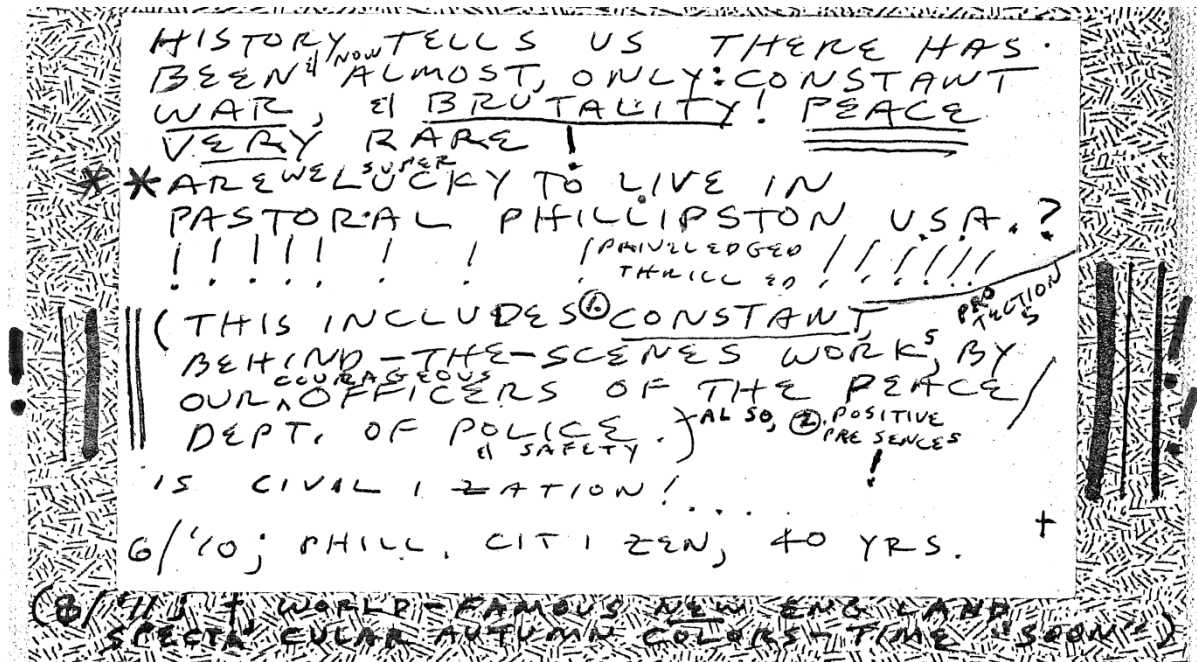 HISTORY TELLS US THERE HAS
BEEN & NOW ALMOST, ONLY: CONSTANT
WAR, & BRUTALITY! PEACE
VERY RARE !
** ARE WE SUPER LUCKY TO LIVE IN
PASTORAL PHILLIPSTON U.S.A.?
! ! ! ! ! ! ! ! PRIVELEDGED ! ! ! ! ! ! !
THRILLED
(THIS INCLUDES ① CONSTANT, PROTECTION
BEHIND-THE-SCENES WORKS, BY
OUR COURAGEOUS OFFICERS OF THE PEACE /
DEPT. OF POLICE & SAFETY.) ALSO, ② POSITIVE
PRESENCES !
IS CIVALIZATION!....
6/'10; PHILL. CITIZEN, 40 YRS. +
(8/'11; + WORLD-FAMOUS NEW ENGLAND
SPECTA'CULAR AUTUMN COLORS-TIME "SOON")